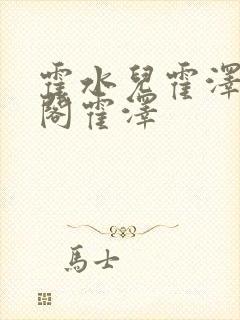 霍水兒霍澤
閣霍澤
馬士